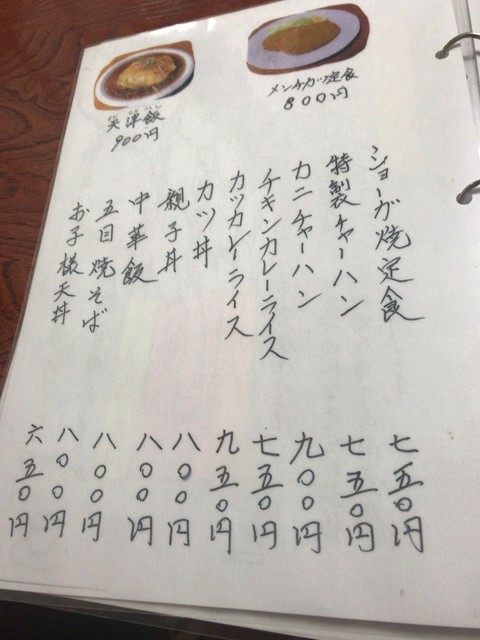 メンチカツ定食
800円
天津飯
900円
ショーガ焼定食 七五〇円
特製チャーハン 七五〇円
カニチャーハン 九〇〇円
チキンカレーライス 七五〇円
カツカレーライス 九五〇円
カツ丼 八〇〇円
親子丼 八〇〇円
中華飯 八〇〇円
五目焼そば 八〇〇円
お子様天丼 六五〇円